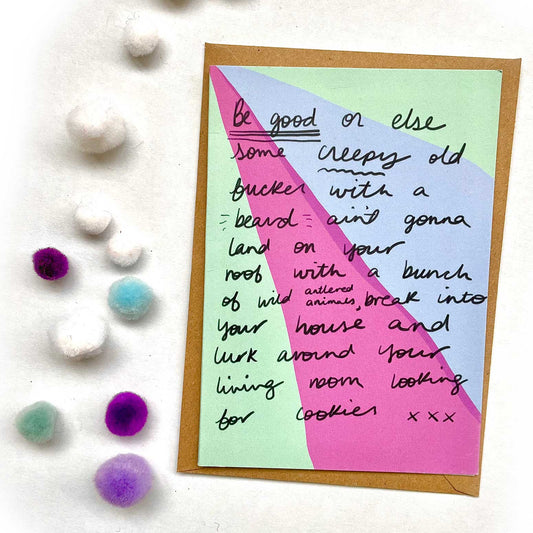 Be good or else
some creepy old
fucker with a
beard ain't gonna
land on your
roof with a bunch
of wild antlered animals, break into
your house and
lurk around your
living room looking
for cookies xxx